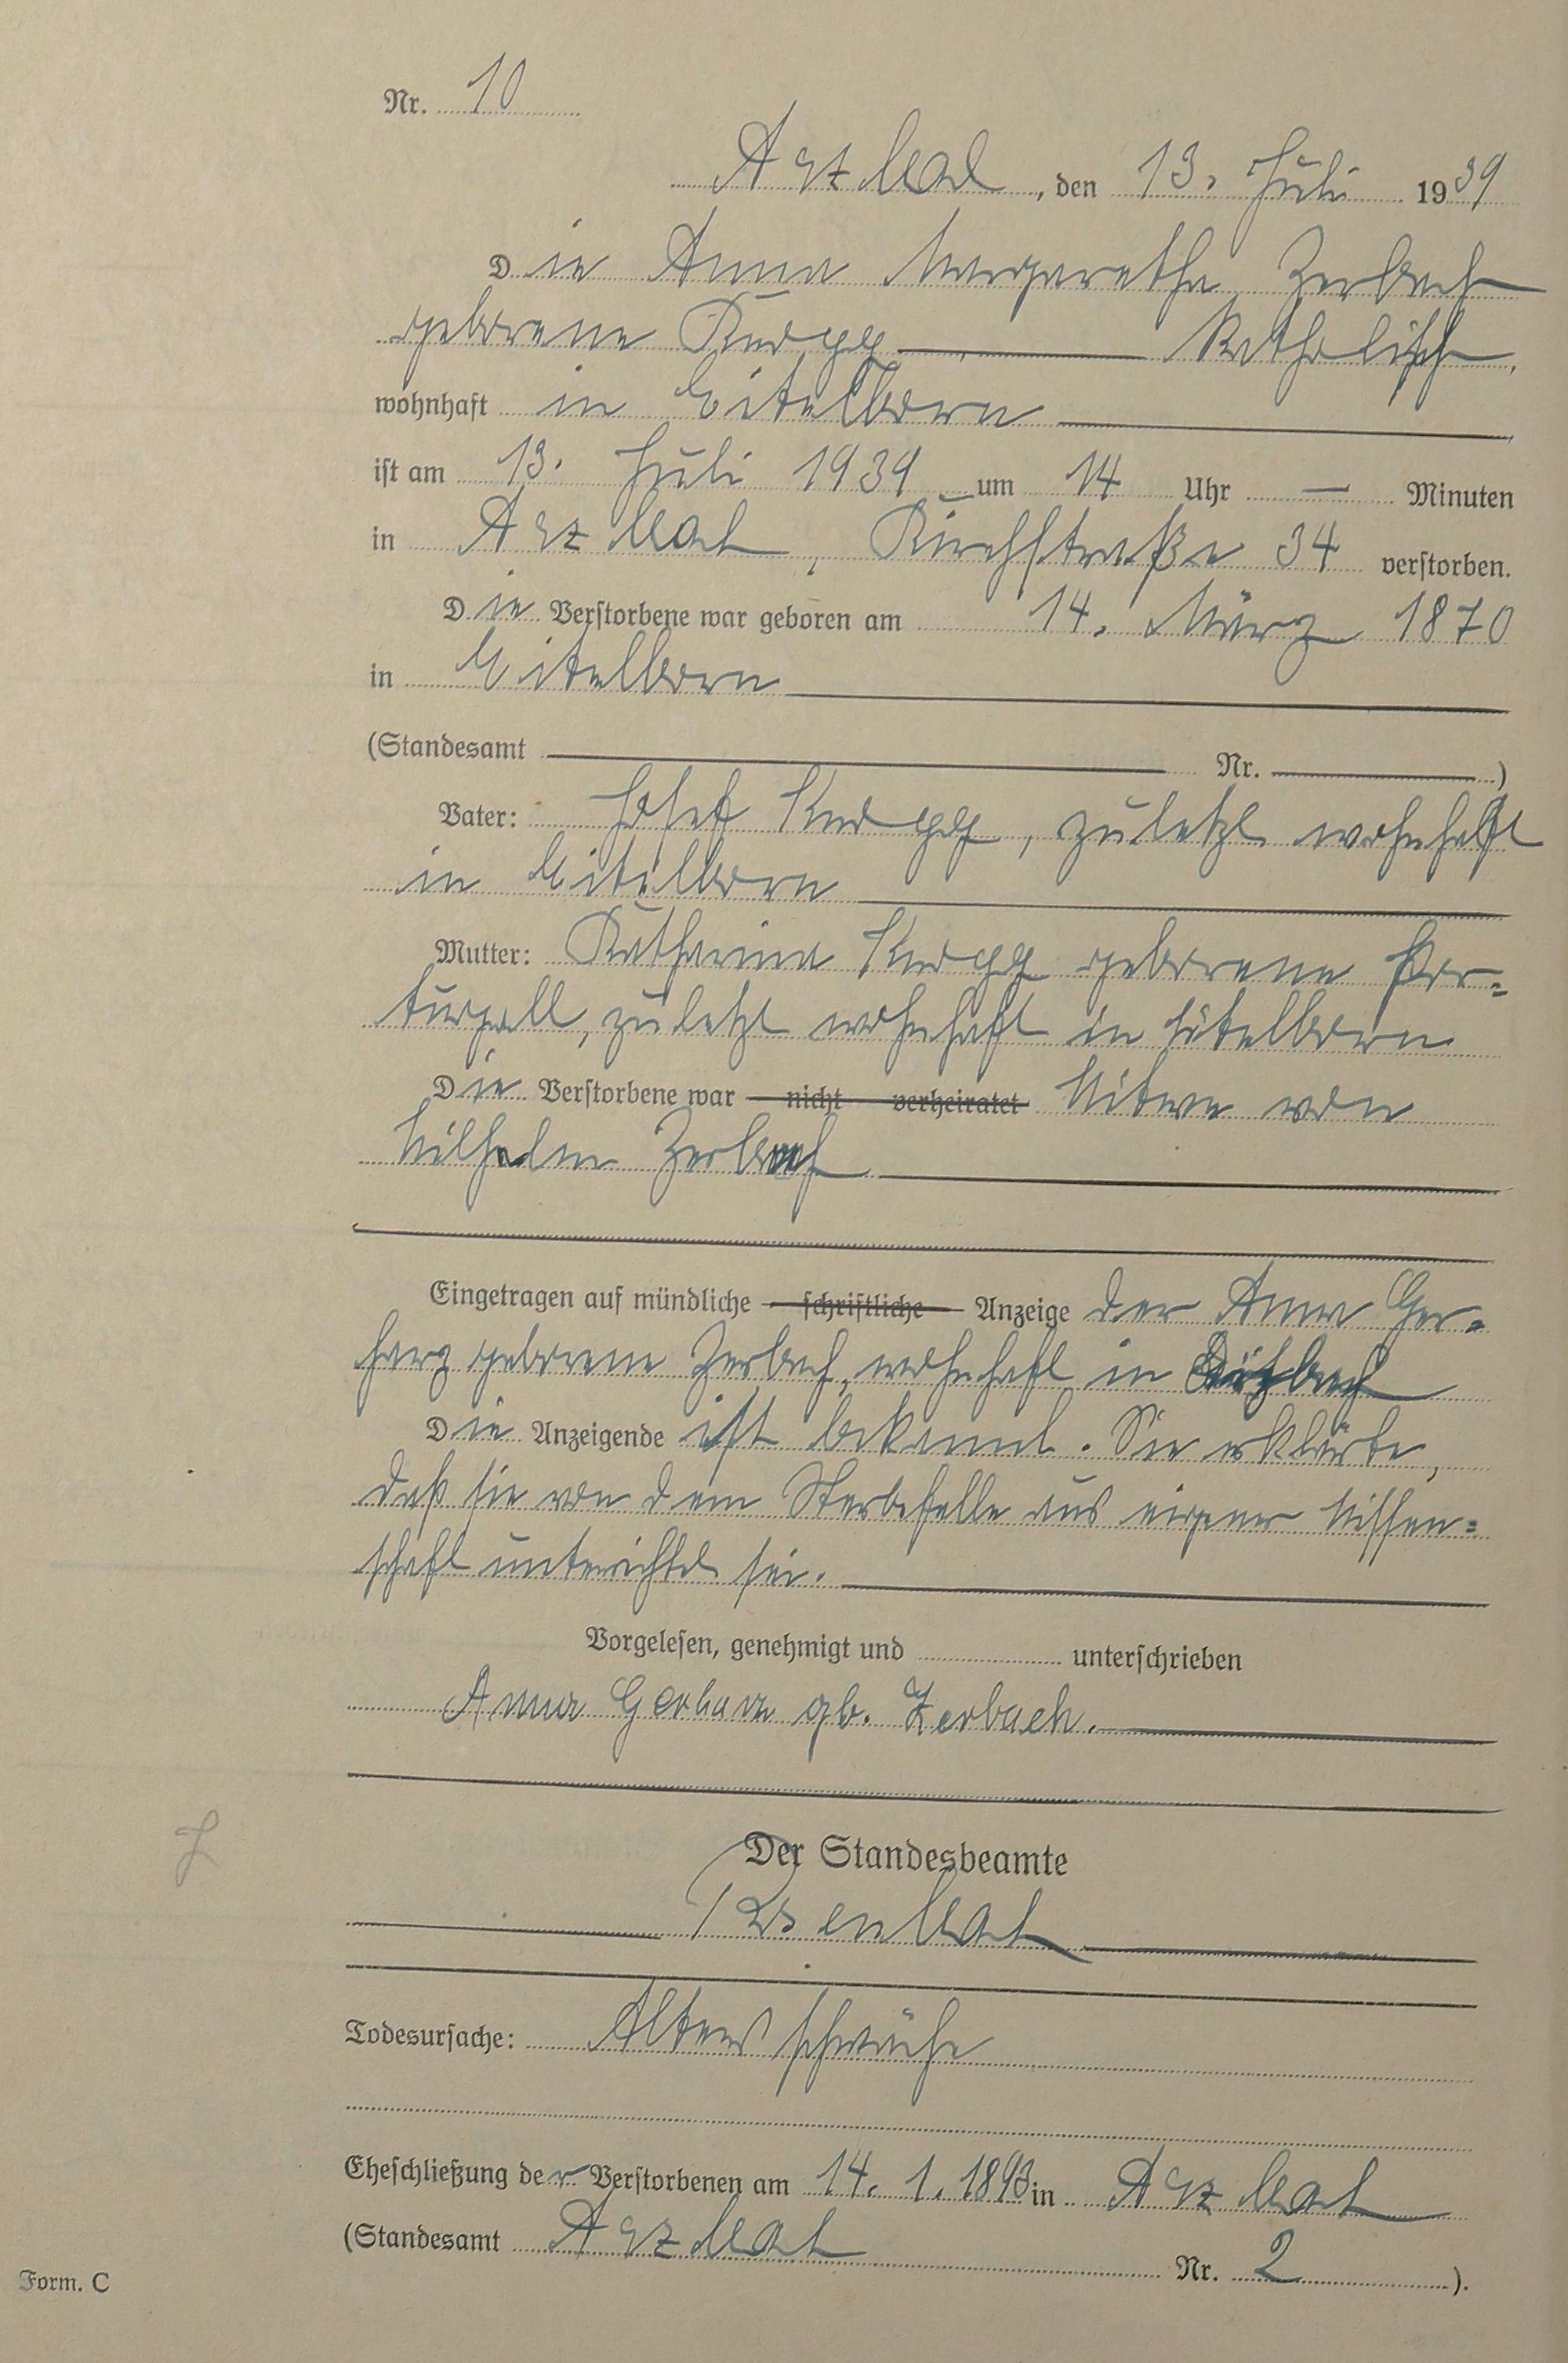 Nr. 10
Arzbach, den 13. Juli 1939
Die Anna Margaretha Zerbach
geborene Knopp — katholisch,
wohnhaft in Eitelborn
ist am 13. Juli 1939 um 14 Uhr — Minuten
in Arzbach, Kirchstraße 34 verstorben.
Die Verstorbene war geboren am 14. März 1870
in Eitelborn
(Standesamt — Nr. —)
Vater: Josef Knopp, zuletzt wohnhaft
in Eitelborn
Mutter: Katharina Knopp geborene Por=
tugall, zuletzt wohnhaft in Eitelborn
Die Verstorbene war nicht verheiratet Witwe von
Wilhelm Zerbach
Eingetragen auf mündliche schriftliche Anzeige der Anna Ger=
harz geborene Zerbach, wohnhaft in Arzbach
Die Anzeigende ist bekannt. Sie erklärte,
daß sie von dem Sterbefalle aus eigener Wissen=
schaft unterrichtet sei.
Vorgelesen, genehmigt und unterschrieben
Anna Gerharz gb. Zerbach.
Der Standesbeamte
Todesursache: Altersschwäche
Eheschließung der Verstorbenen am 14. 1. 1893 in Arzbach
(Standesamt Arzbach Nr. 2).
Form. C